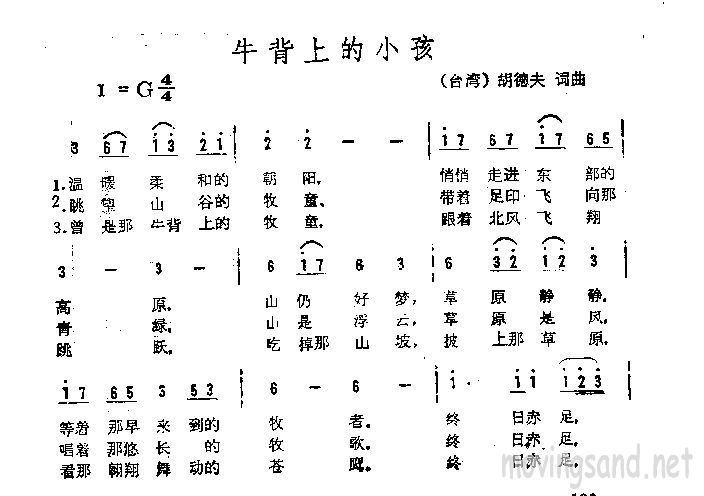 牛背上的小孩
1 = G 4/4
（台湾）胡德夫 词曲
3 67 i3 2i | 2 2 - - | i7 67 i7 65 |
1.温暖柔和的 朝阳， 悄悄走进东部的
2.眺望山谷的 牧童， 带着足印飞向那
3.曾是那牛背上的 牧童， 跟着北风飞翔
3 - 3 - | 6 i7 6 3 | 6 3̇2̇ i2̇ 2̇ |
高原。 山仍好梦，草原静静。
青绿。 山是浮云，草原是风。
跳跃。 吃掉那山坡，披上那草原。
i7 65 3 53 | 6 - 6 - | i· ii i2̇3̇ |
等着那早来到的 牧者。 终日赤足，
唱着那悠长的 牧歌。 终日赤足。
看那翱翔舞动的 苍鹰。 终日赤足。
movingsand.net